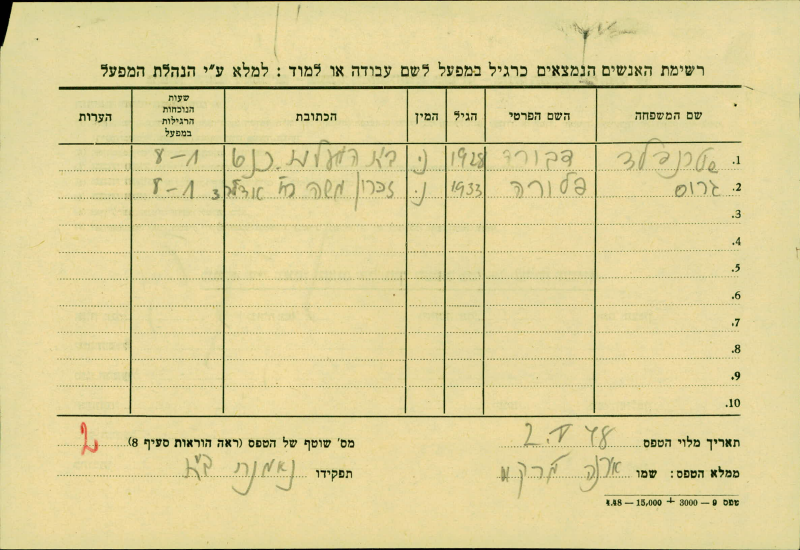 רשימת האנשים הנמצאים כרגיל במפעל לשם עבודה או למוד : למלא ע״י הנהלת המפעל
שם המשפחה השם הפרטי הגיל המין הכתובת שעות הנוכחות הרגילות במפעל הערות
1. שטרנפלד דבורה 1928 נ. 8-1
2. גרוס פלורה 1933 נ. זכרון משה 8-1
3.
4.
5.
6.
7.
8.
9.
10.
תאריך מלוי הטפס 2.V 48 מס' שוטף של הטפס (ראה הוראות סעיף 8) 2
ממלא הטפס: שמו תפקידו
טפס 9 — 3000 + 15,000 — 4.48